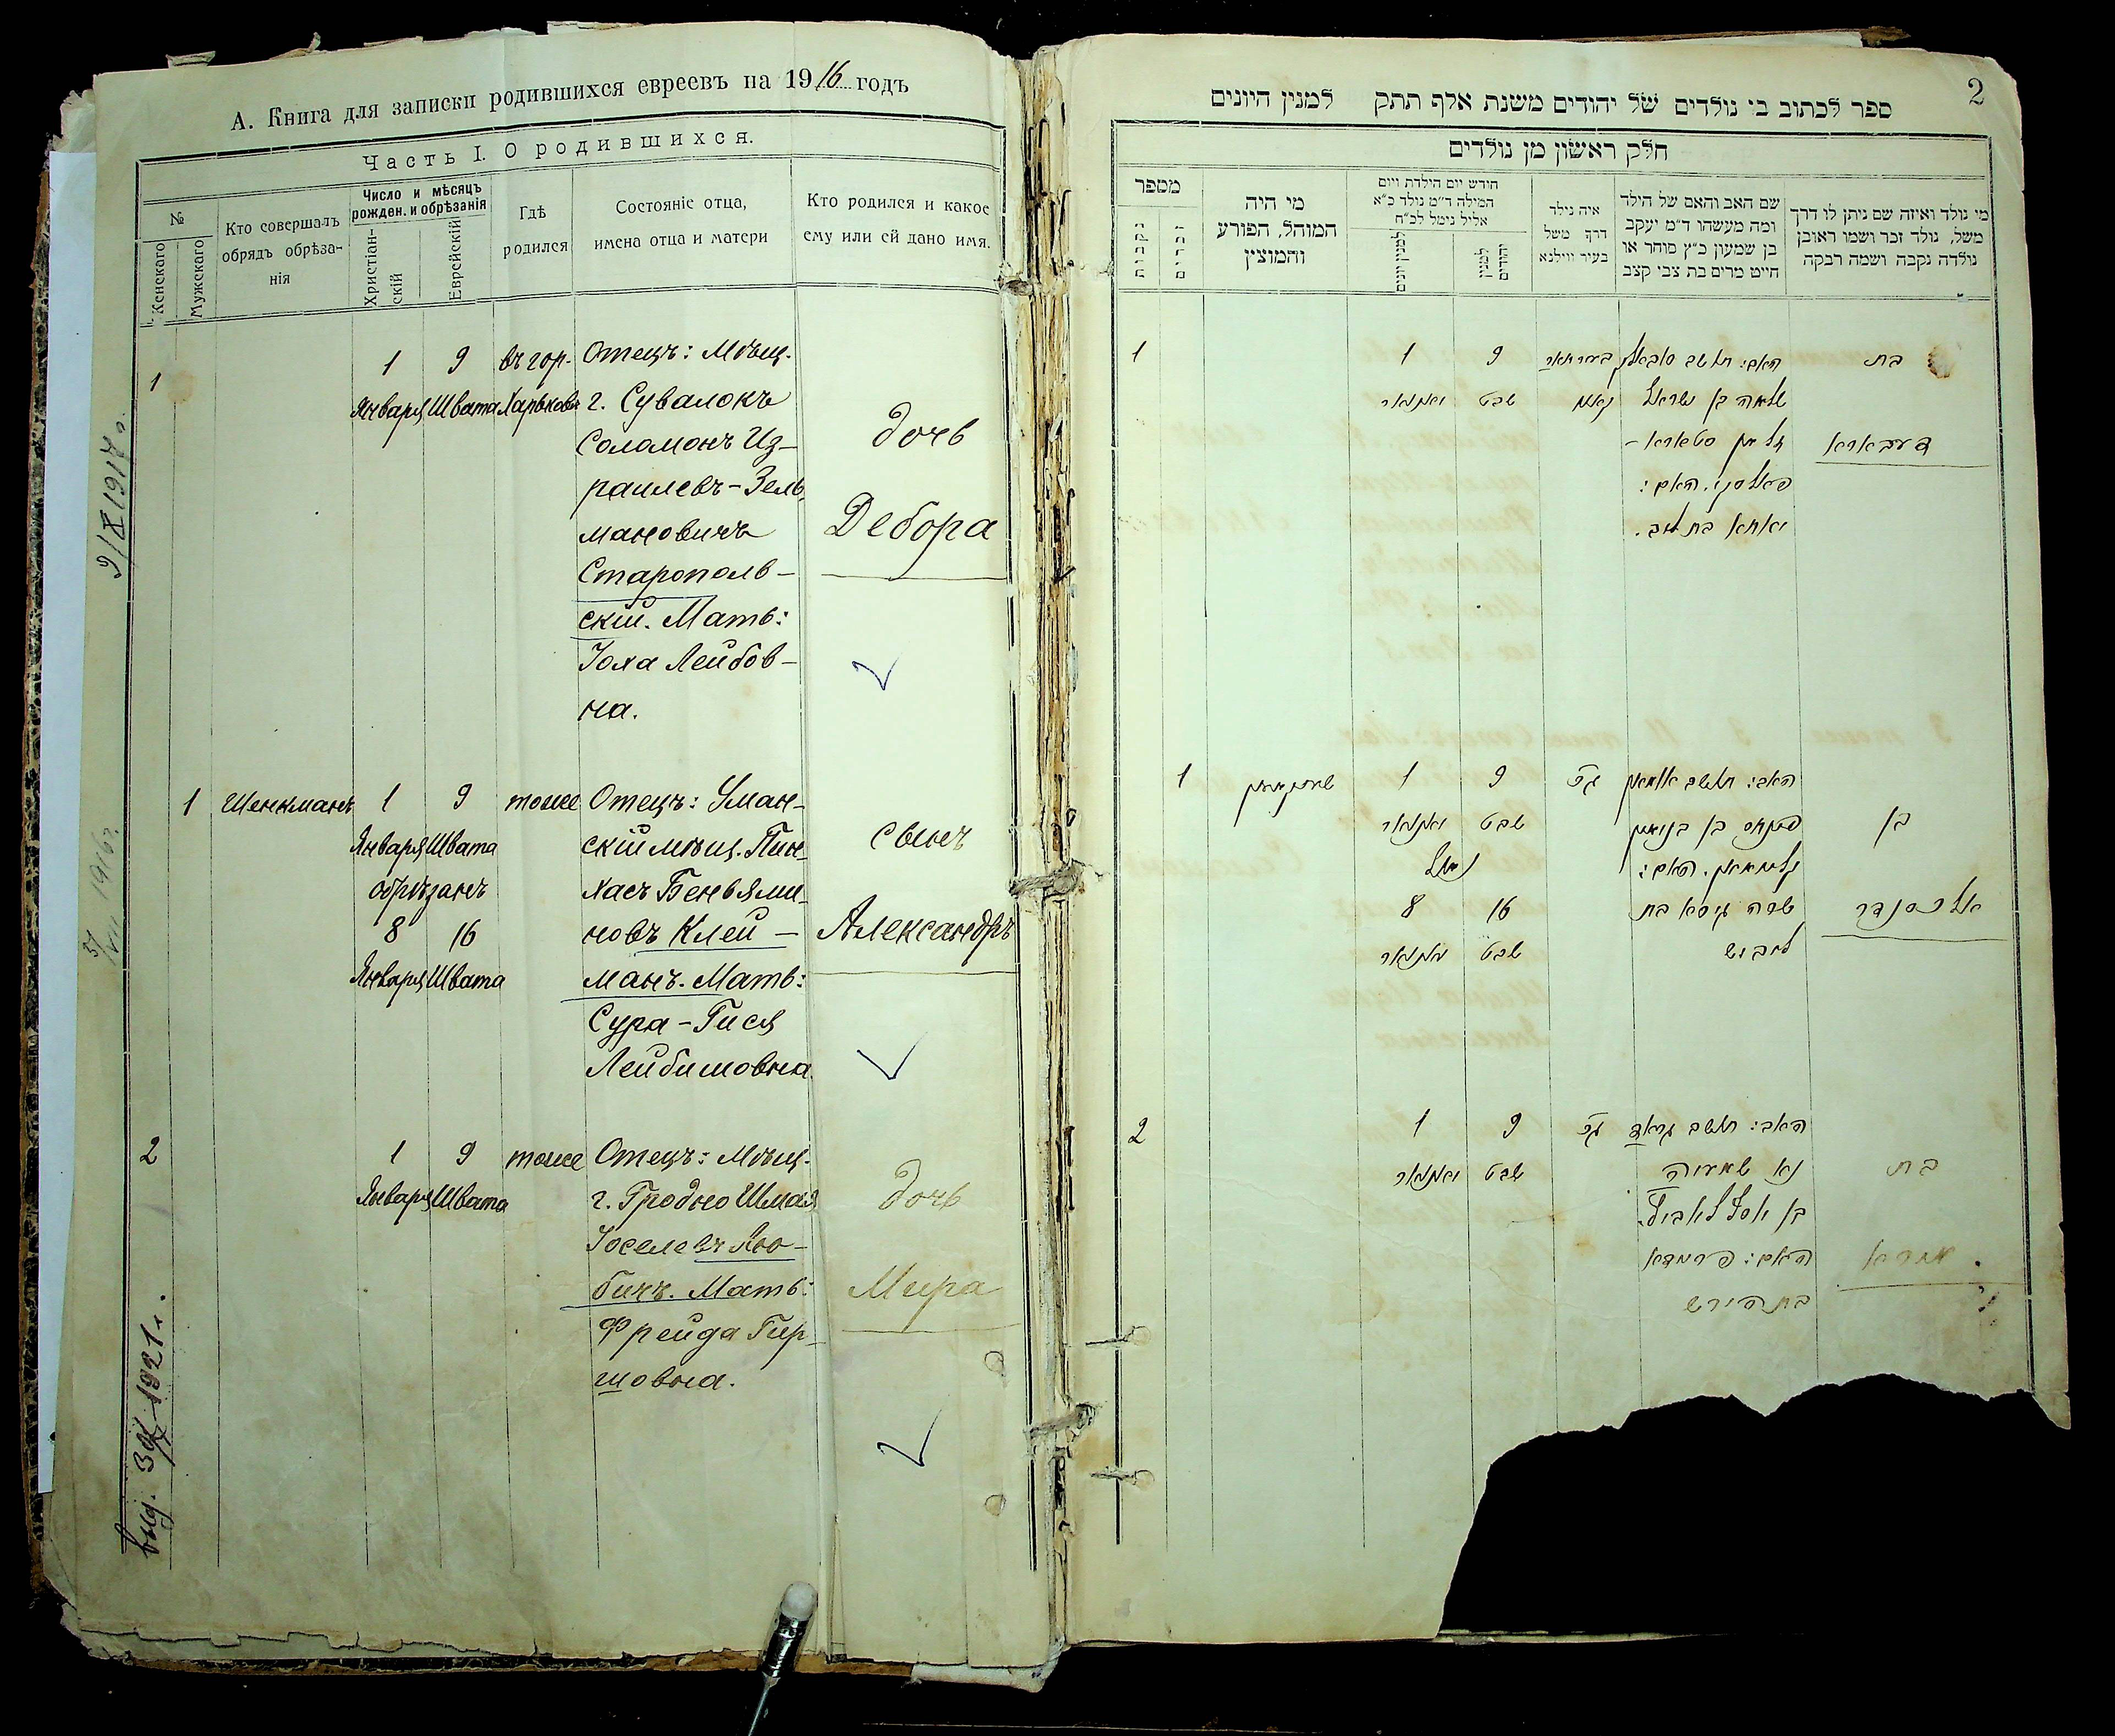 А. Книга для записки родившихся евреевъ на 1916 годъ
Часть I. О родившихся.
№
Женскаго
Мужскаго
Кто совершалъ
обрядъ обрѣза-
нія
Число и мѣсяцъ
рожден. и обрѣзанія
Христіан-
скій
Еврейскій
Гдѣ
родился
Состояніе отца,
имена отца и матери
Кто родился и какое
ему или ей дано имя.
1
1 9 въ гор.
Января Швата Харьковѣ
Отецъ: Мѣщ.
г. Сувалокъ
Соломонъ Из-
раилевъ-Зель
мановичъ
Старополь-
скій. Мать:
Іоха Лейбов-
на.
дочь
Дебора
1 Шенкманъ 1 9 тоже
Января Швата
обрѣзанъ
8 16
Января Швата
Отецъ: Уман-
скій мѣщ. Пин-
хасъ Беньями-
новъ Клей-
манъ. Мать:
Сура-Гися
Лейбишовна.
сынъ
Александръ
2
1 9 тоже
Января Швата
Отецъ: Мѣщ.
г. Гродно Шмая
Іоселевъ Лю-
бичъ. Мать:
Фрейда Гир-
шовна.
дочь
Мира
9/IX 1917 г.
1916 г.
выд. 1921 г.
2
ספר לכתוב בו נולדים של יהודים משנת אלף תתק למנין היונים
חלק ראשון מן נולדים
מספר
נקבות
זכרים
מי היה
המוהל, הפורע
והמוצין
חודש יום הילדת ויום
המילה ד״מ נולד כ״א
אליל נימל לכ״ח
למנין יונים
למנין
יהודים
איה נילד
דרך משל
בעיר ווילנא
שם האב והאם של הילד
ומה מעשהו ד״מ יעקב
בן שמעון כ״ץ סוחר או
חייט מרים בת צבי קצב
מי נולד ואיזה שם ניתן לו דרך
משל, נולד זכר ושמו ראובן
נולדה נקבה ושמה רבקה
1
1 9
יאנואר שבט
האב:
האם:
בת
דעבארא
1
1 9
יאנואר שבט
נימול
8 16
יאנואר שבט
האב:
פינחס בן בנימין
קליימאן. האם:
שרה גיסא בת
לייביש
בן
אלכסנדר
2
1 9
יאנואר שבט
האב:
נא שמעיה
האם: פריידא
בת הירש
בת
מירא